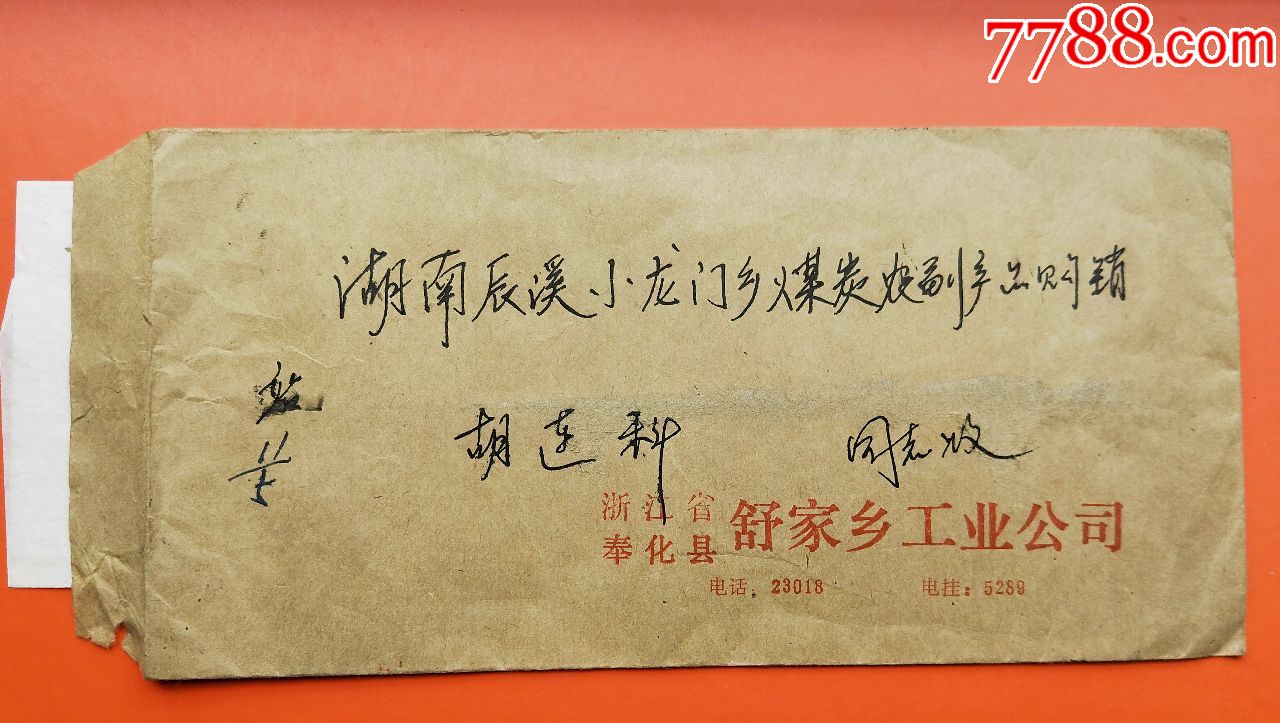 7788.com
湖南辰溪小龙门乡煤炭农副产品购销
站
胡连科 同志收
11/5
浙江省
奉化县 舒家乡工业公司
电话:23018 电挂:5289